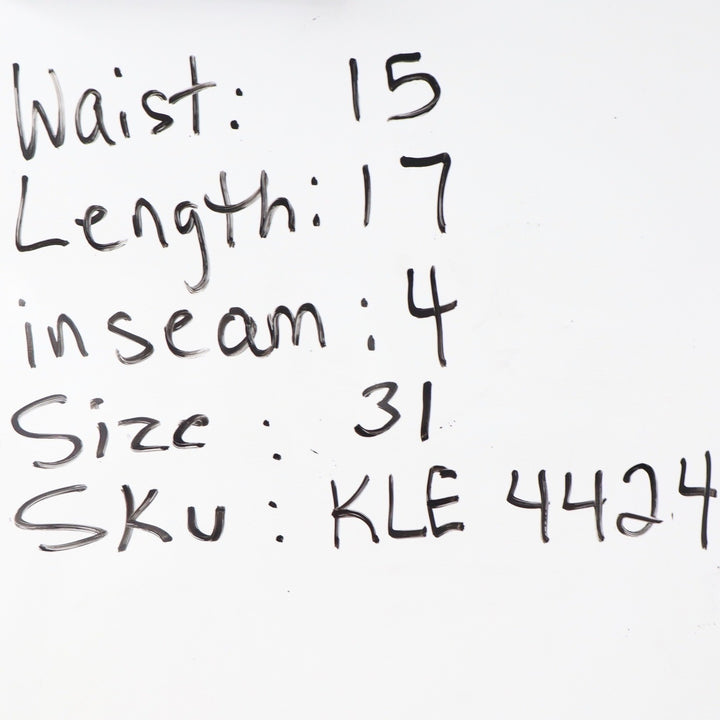 Waist: 15
Length: 17
inseam: 4
Size: 31
SKu: KLE 4424